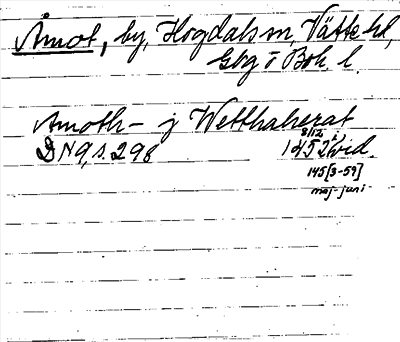 Åmot, by, Hogdals sn, Vätte hd,
Gbg o Boh. l.
Amoth - j Wetthaherat
8/12
DN 9, s. 298 1452 vid.
145[3-59]
maj-juni